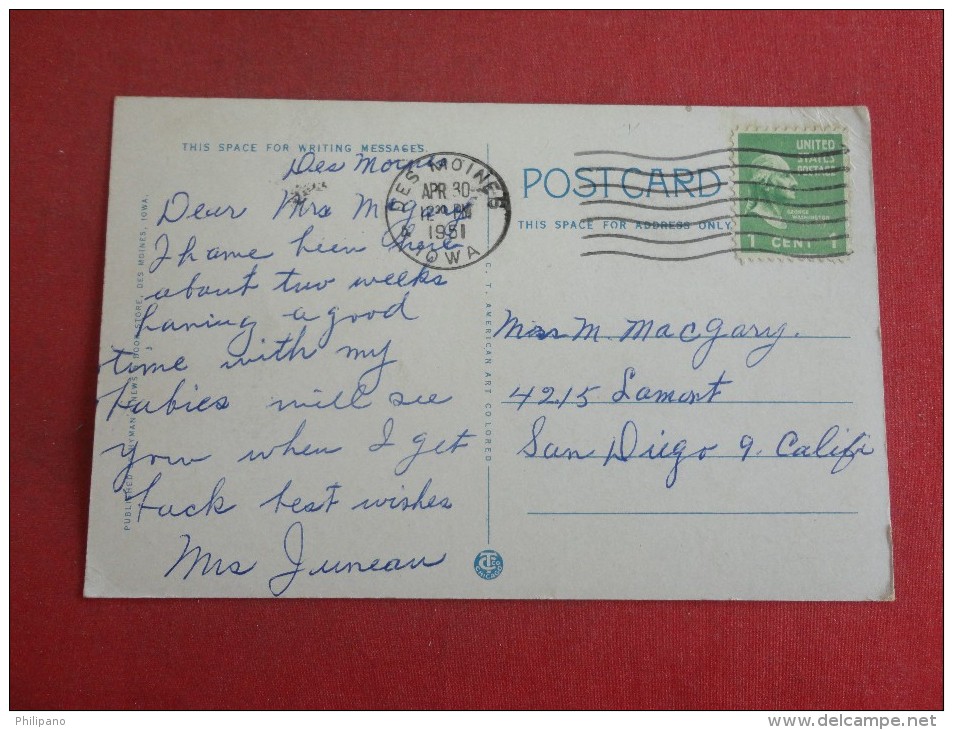 THIS SPACE FOR WRITING MESSAGES.
Des Moines
Dear Mrs
I have been here
about two weeks
having a good
time with my
babies will see
you when I get
back best wishes
Mrs Juneau
DES MOINES
APR 30
12 30 PM
1951
IOWA
POST CARD
THIS SPACE FOR ADDRESS ONLY.
UNITED
STATES
POSTAGE
GEORGE
WASHINGTON
1 CENT 1
M. MacGary.
4215 Lamont
San Diego 9. Calif
PUBLISHED HYMAN'S NEWS & BOOK STORE, DES MOINES, IOWA
C. T. AMERICAN ART COLORED
CHICAGO
Philipano
www.delcampe.net